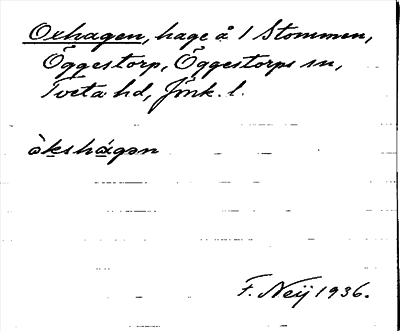 Oxhagen, hage å 1 Stommen,
Öggestorp, Öggestorps sn,
Tveta hd, Jönk. l.
òkshágən
F. Neij 1936.